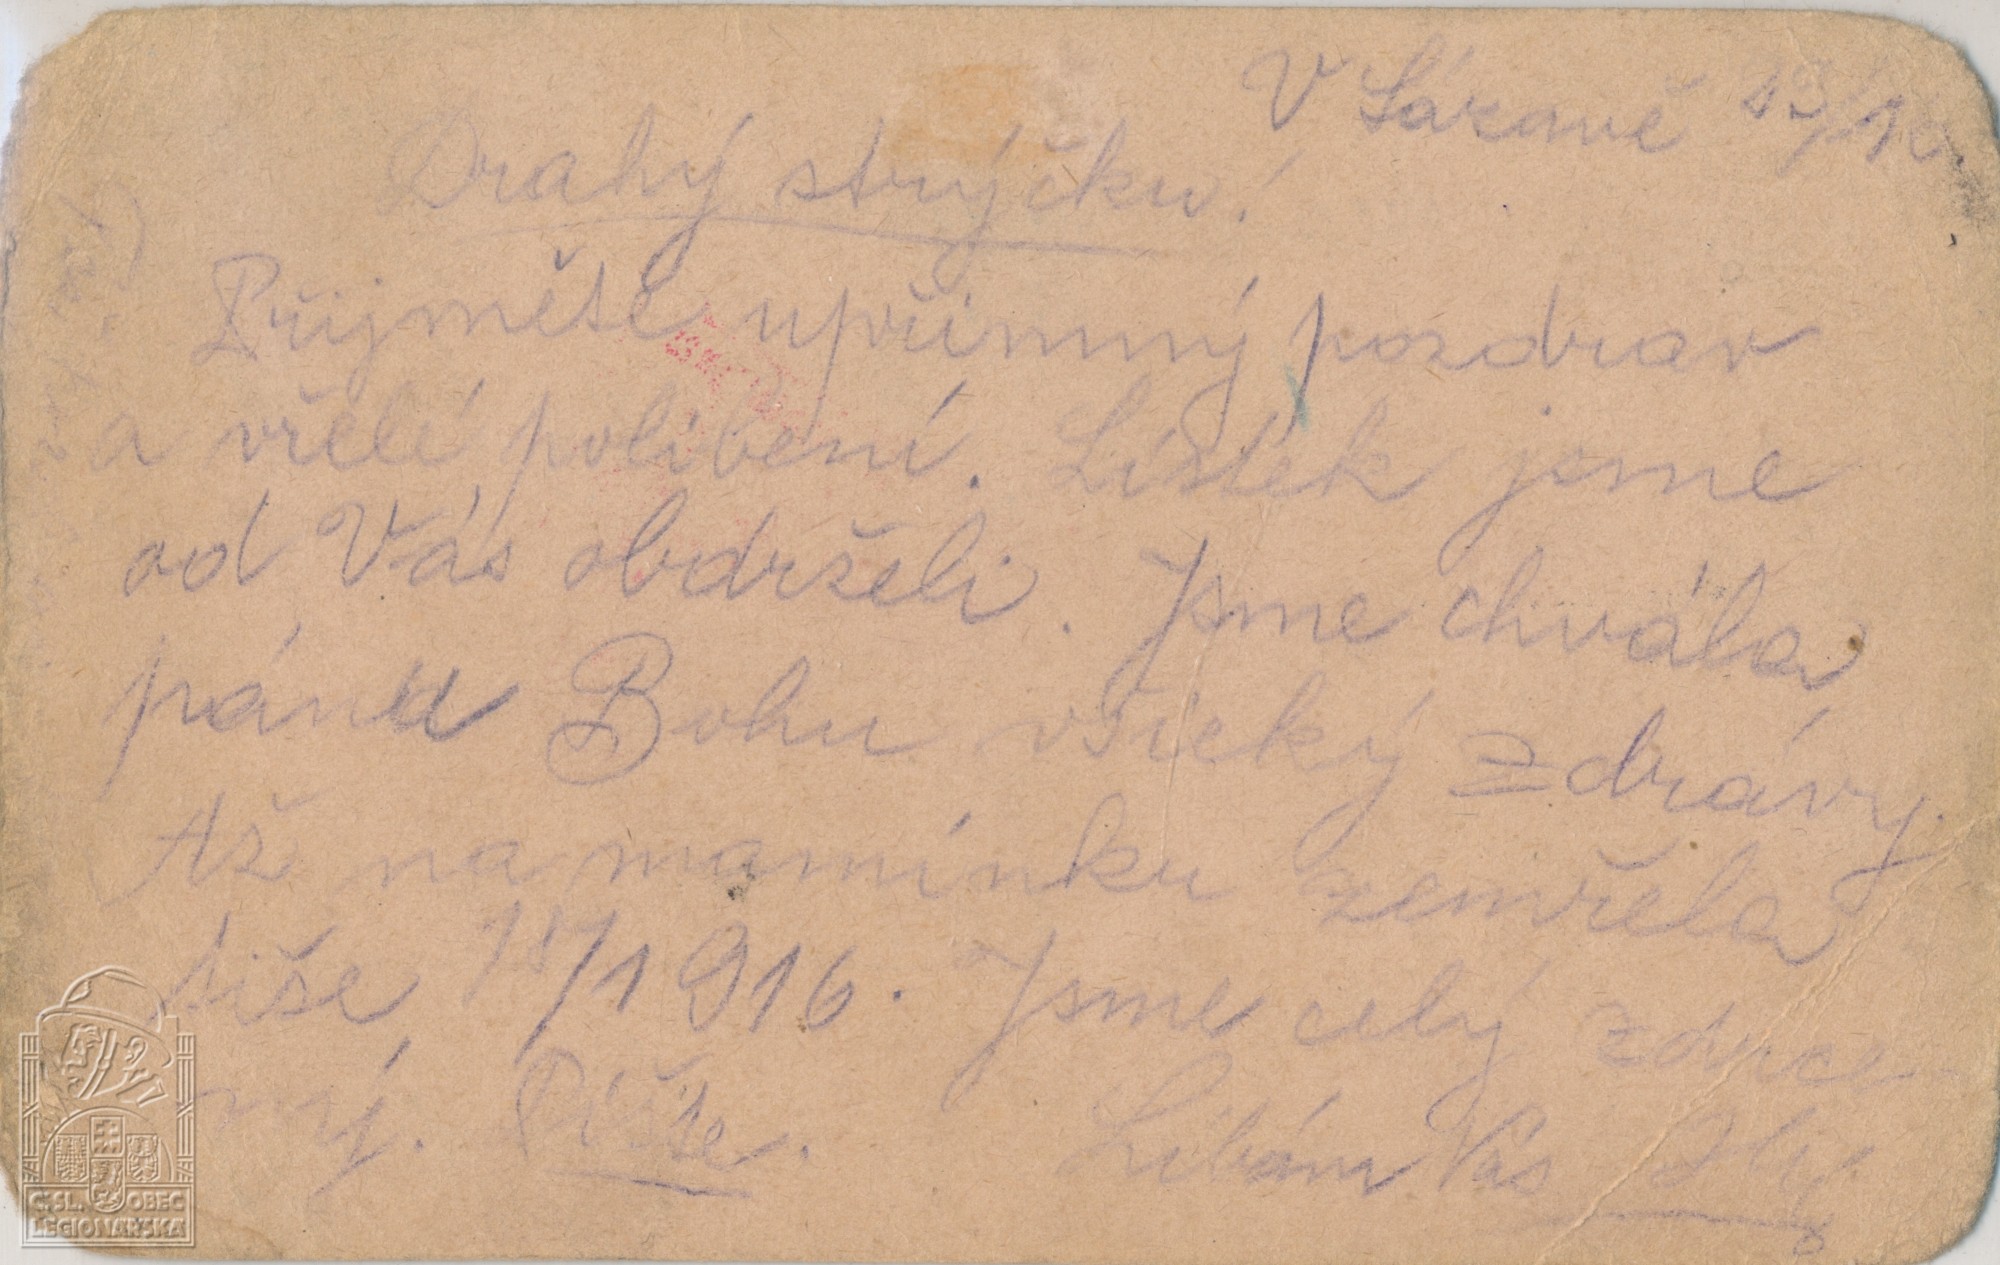 V Sázavě
Drahý strýčku!
Přijměte upřímný pozdrav
a vřelé políbení. Lístek jsme
od Vás obdrželi. Jsme chvála
pánu Bohu všicky zdrávy.
Až na mamínku zemřela
tiše 18/1 1916. Jsme celý zdrce
ný. Pište. Líbám Vás
Č. SL. OBEC
LEGIONÁŘSKÁ